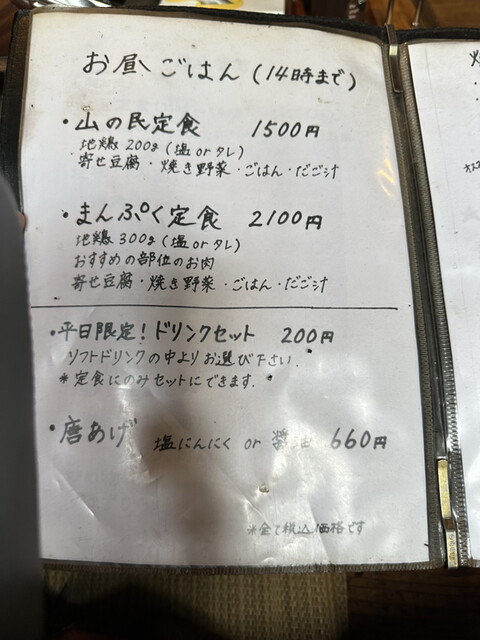 お昼、ごはん (14時まで)
・山の民定食 1500円
地鶏 200g (塩 or タレ)
寄せ豆腐・焼き野菜・ごはん・だご汁
・まんぷく定食 2100円
地鶏 300g (塩 or タレ)
おすすめの部位のお肉
寄せ豆腐・焼き野菜・ごはん・だご汁
・平日限定! ドリンクセット 200円
ソフトドリンクの中よりお選び下さい.
*定食にのみセットにできます.
・唐あげ 塩にんにく or 醤油 660円
*全て税込価格です